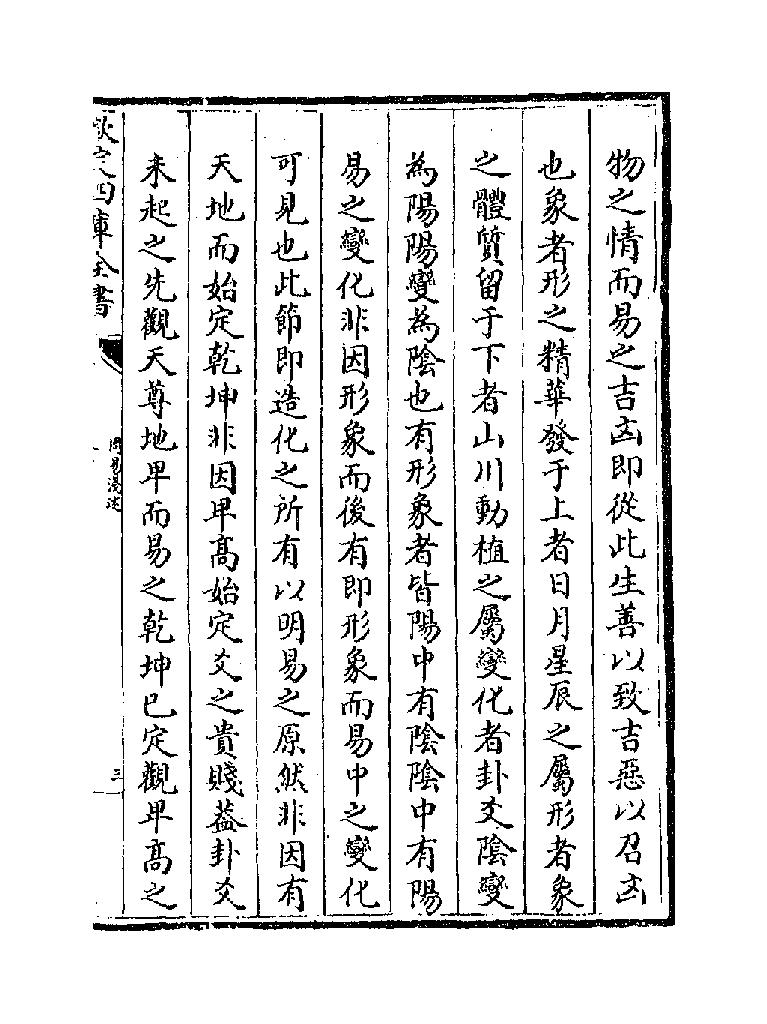 物之情而易之吉凶即從此生善以致吉惡以召凶
也象者形之精華發于上者日月星辰之屬形者象
之體質留于下者山川動植之屬變化者卦爻陰變
為陽陽變為陰也有形象者皆陽中有陰陰中有陽
易之變化非因形象而後有即形象而易中之變化
可見也此節即造化之所有以明易之原然非因有
天地而始定乾坤非因卑髙始定爻之貴賤葢卦爻
未起之先觀天尊地卑而易之乾坤已定觀卑髙之
欽定四庫全書
周易淺述
三